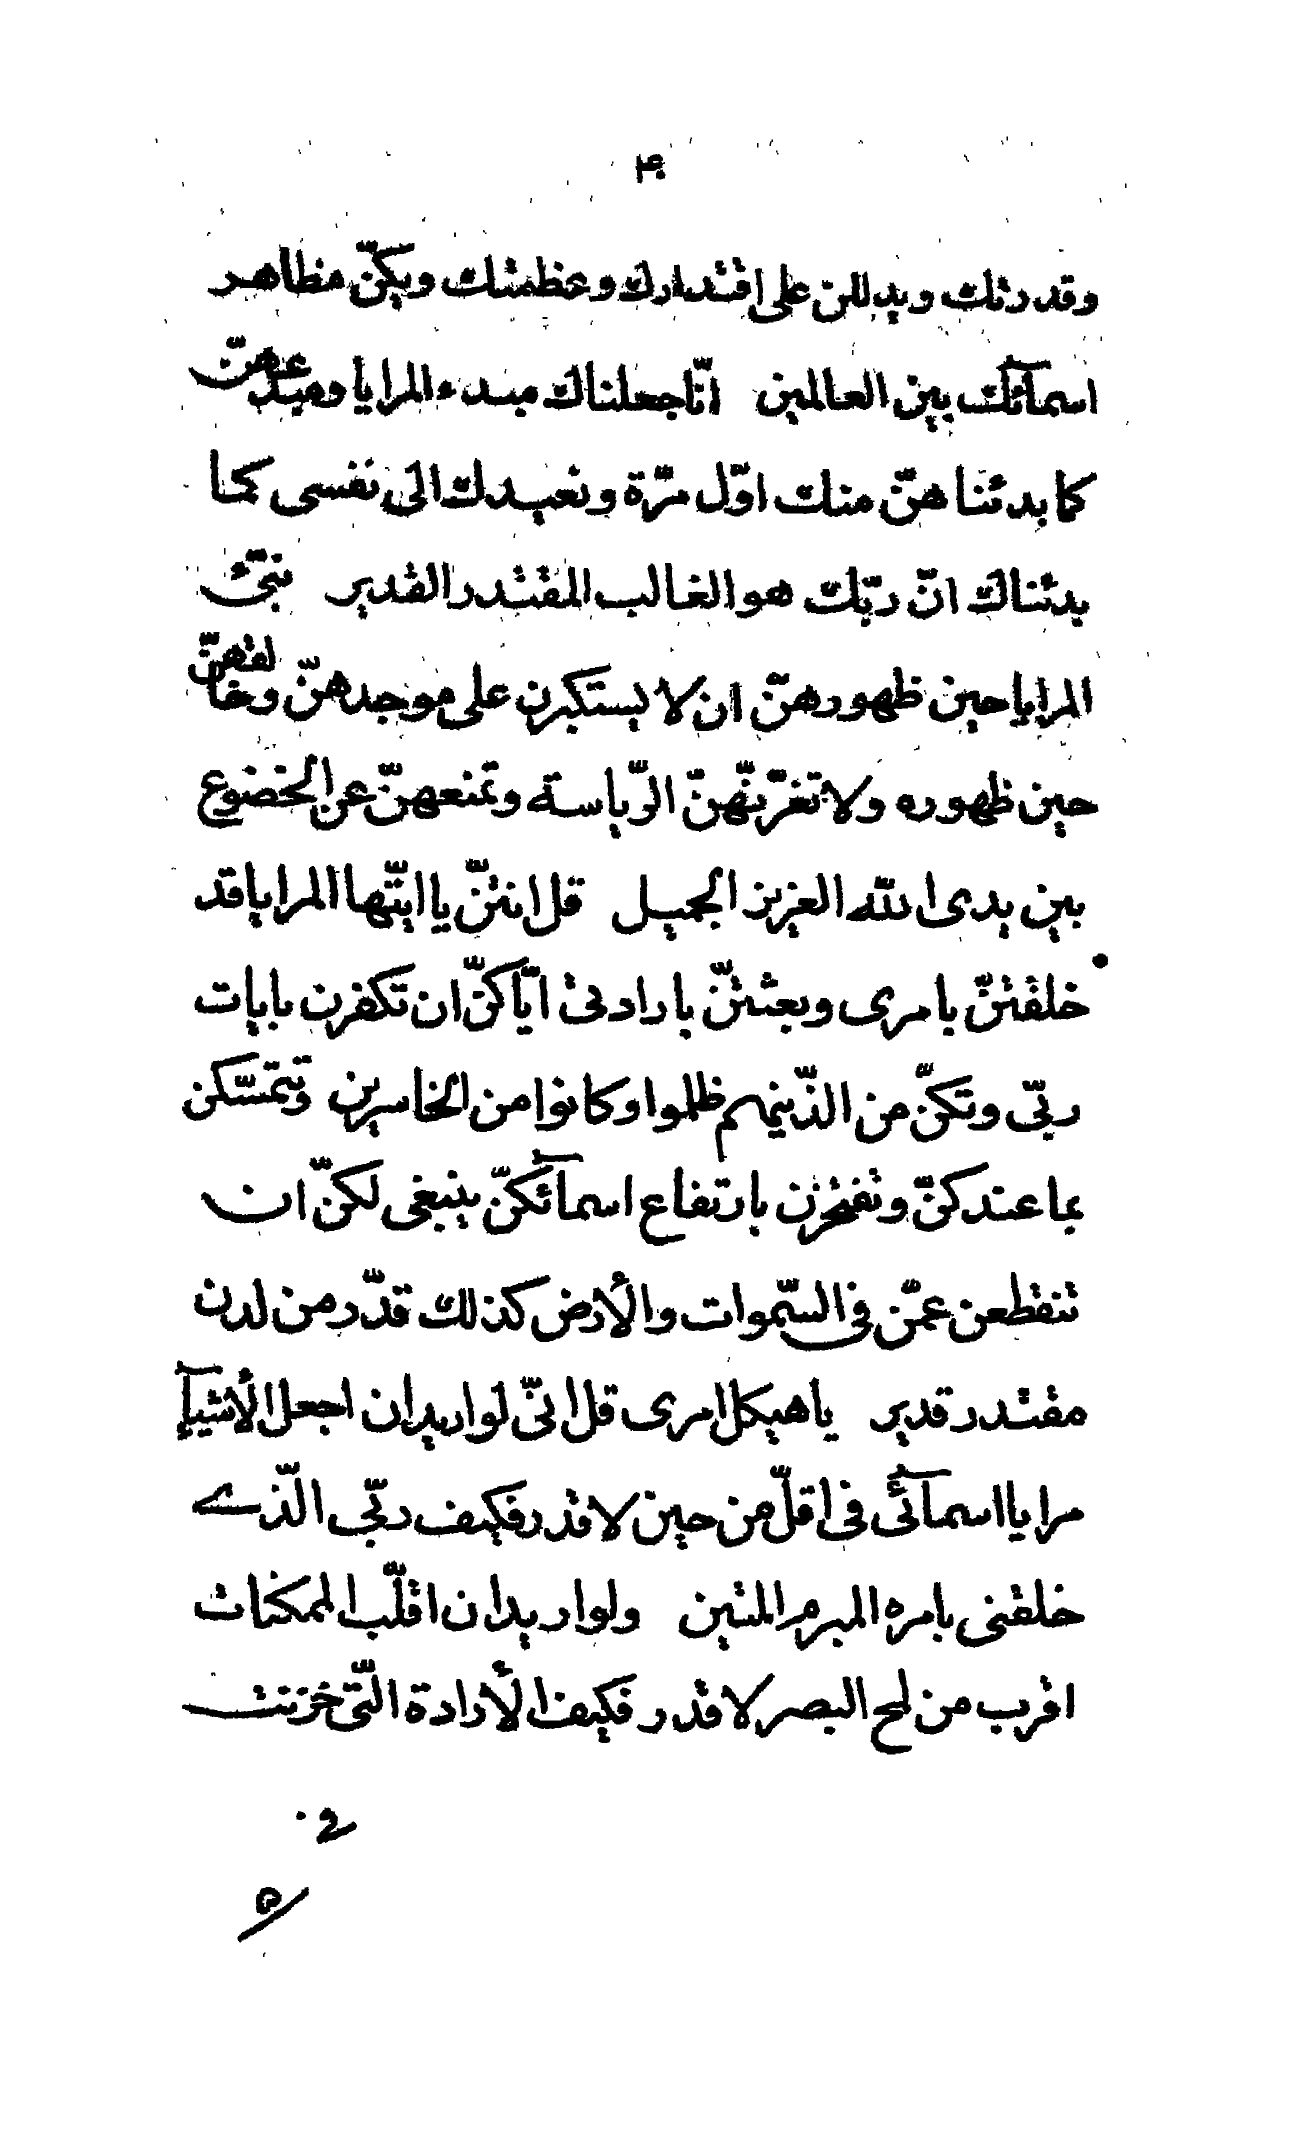 ۴۰
وقدرتك ويدللن على اقتدارك وعظمتك ويكنّ مظاهر
اسمآئك بين العالمين انّا جعلناك مبدء المرايا ومبدعهنّ
كما بدئنا هنّ منك اوّل مرّة ونعيدك الى نفسى كما
بدئناك انّ ربّك هو الغالب المقتدر القدير نبّئ
المرايا حين ظهورهنّ ان لا يستكبرن على موجدهنّ وخالقهنّ
حين ظهوره ولا تغرّنّهنّ الرّياسة وتمنعهنّ عن الخضوع
بين يدى الله العزيز الجميل قل انتنّ يا ايتّها المرايا قد
خلقتنّ بامرى وبعثتنّ بارادتى ايّاكنّ ان تكفرن بايات
ربّى وتكنّ من الذّينهم ظلموا وكانوا من الخاسرين وتتمسّكن
بما عندكنّ وتفتخرن بارتفاع اسمآئكنّ ينبغى لكنّ ان
تنقطعن عمّن فى السّموات والأرض كذلك قدّر من لدن
مقتدر قدير يا هيكل امرى قل انّى لو اريد ان اجعل الأشيآء
مرايا اسمآئى فى اقلّ من حين لاقدر فكيف ربّى الّذى
خلقنى بامره المبرم المتين ولو اريد ان اقلّب الممكنات
اقرب من لمح البصر لاقدر فكيف الأرادة الّتى خزنت
فى
۵